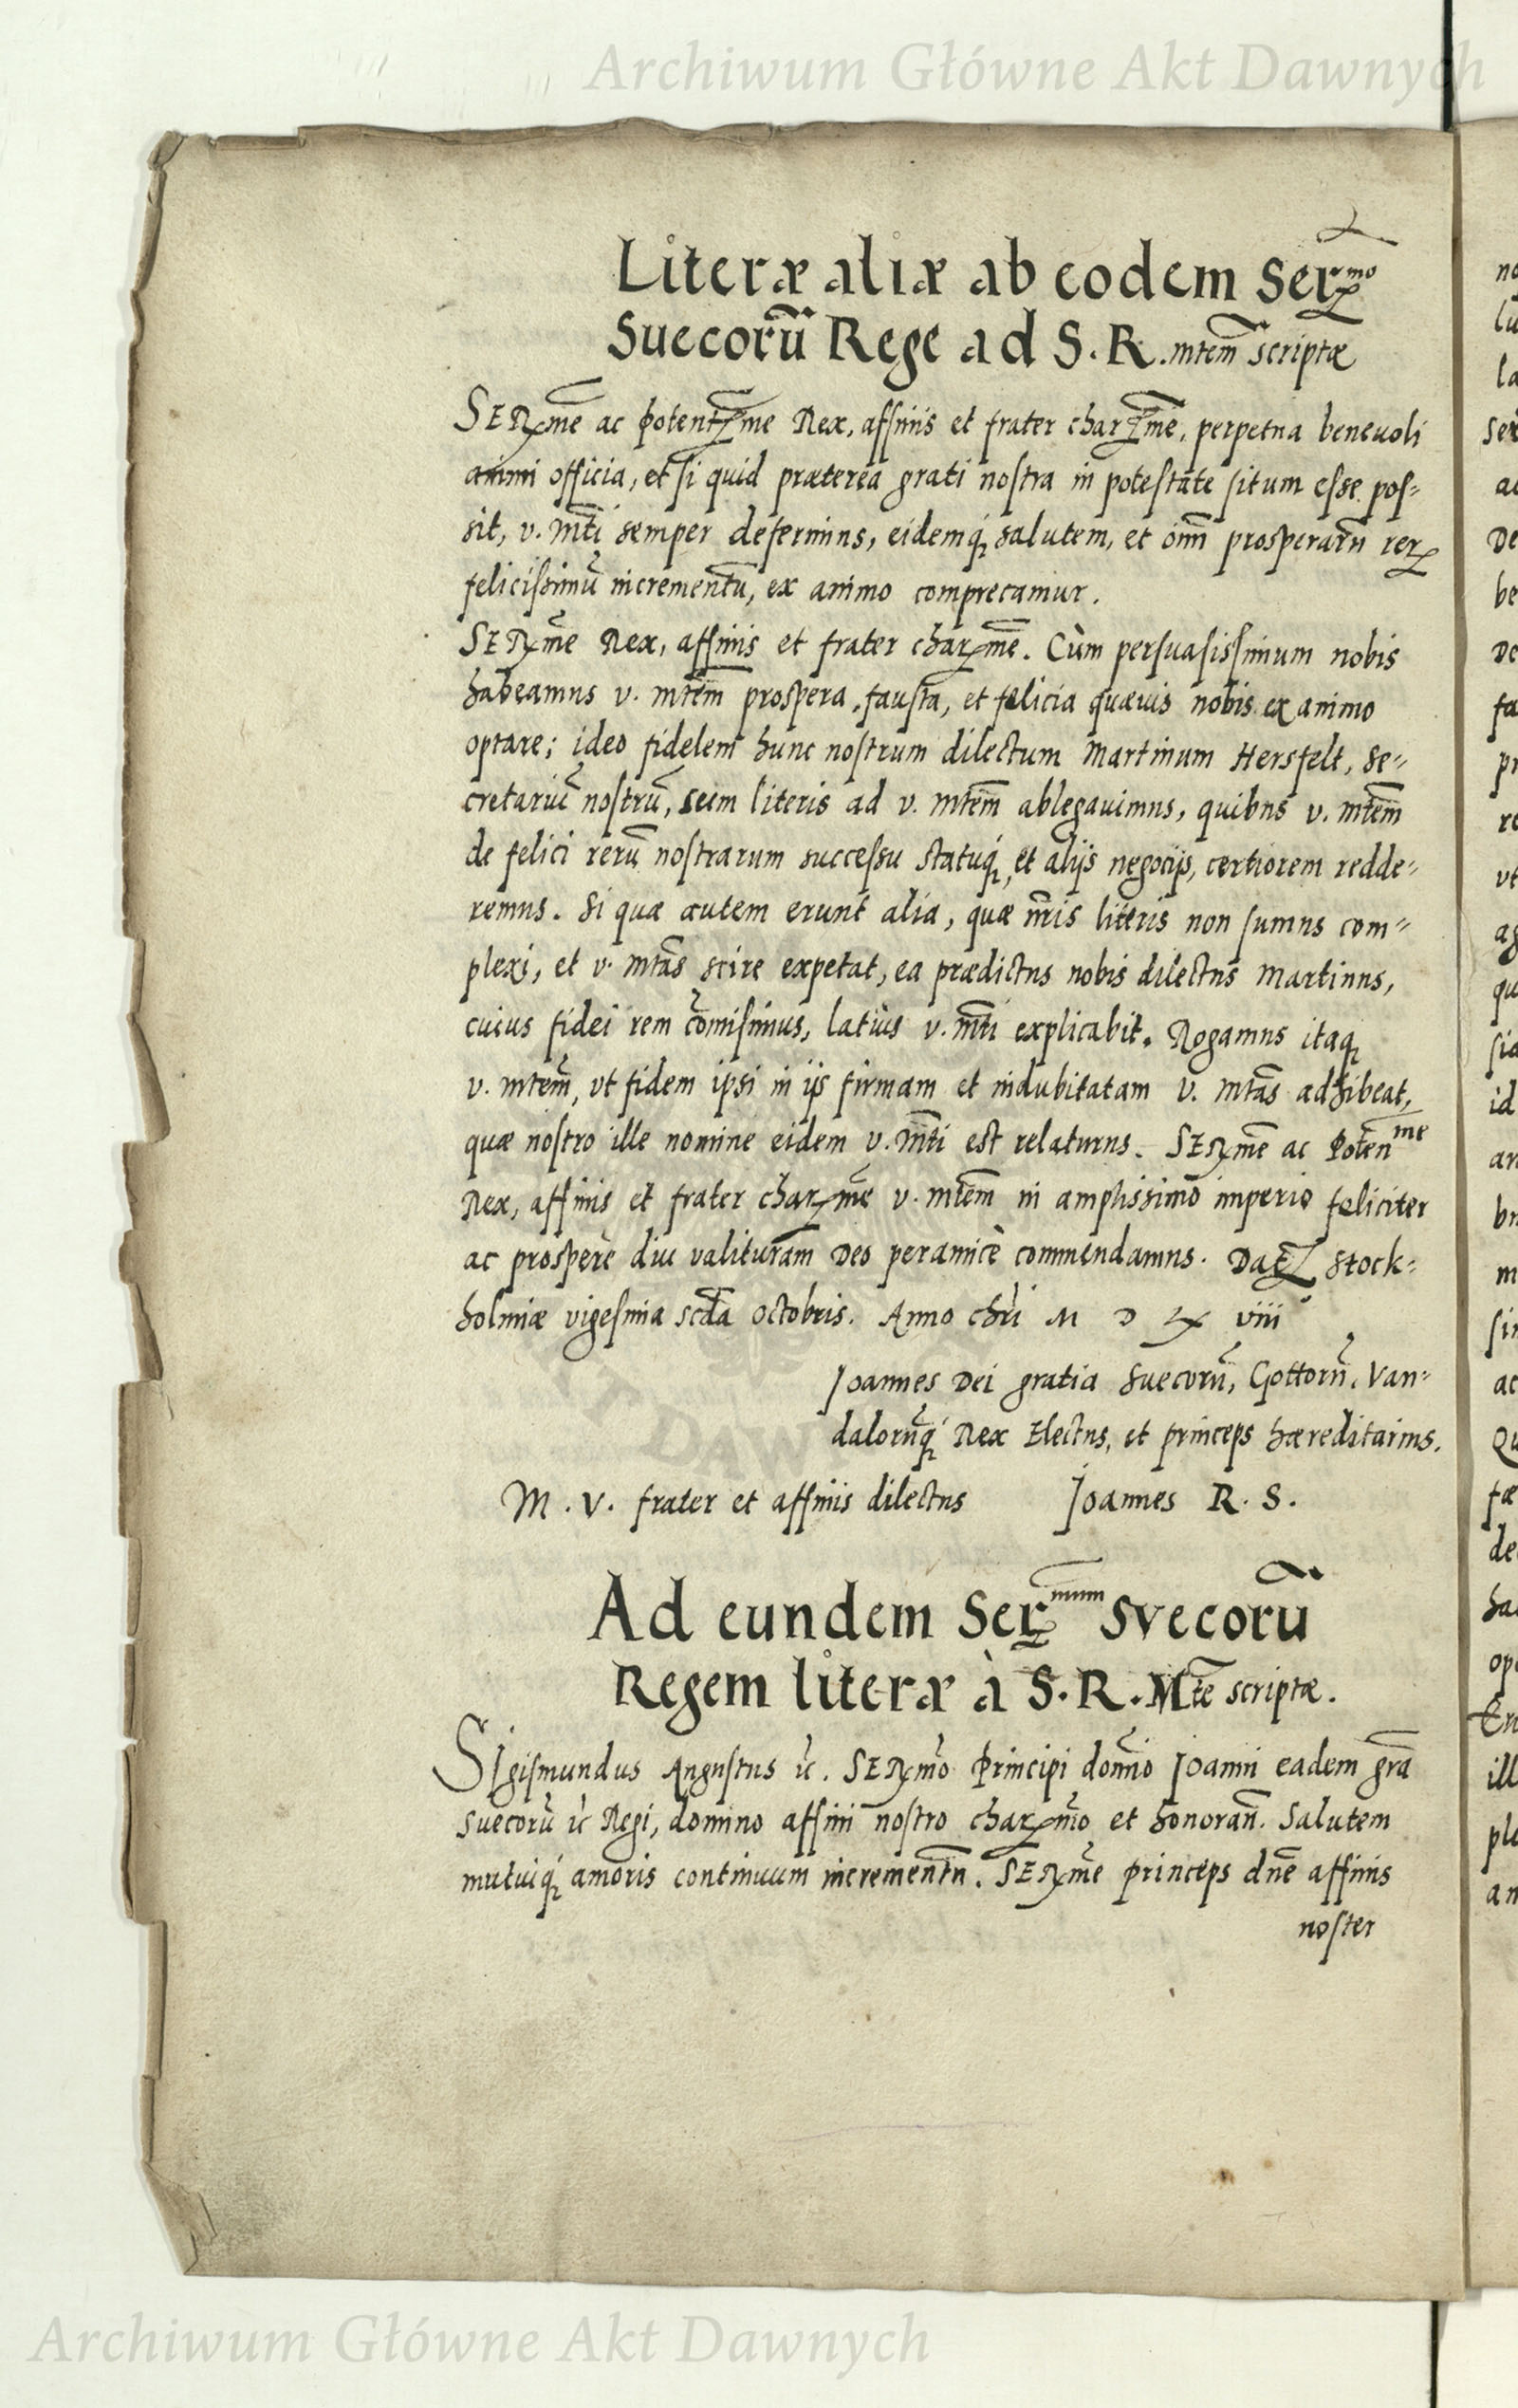 Archiwum Główne Akt Dawnych
Literæ aliæ ab eodem Ser.mo
Suecorū Rege ad S. R. mtem̄ scriptæ
SERme ac Potentme Rex, affinis et frater charme, perpetua beneuoli
animi officia, et si quid præterea grati nostra in potestate situm esse pos=
sit, v. Mti semper deferimus, eidemq́ salutem, et om̄ prosperarū rerꝝ
felicissimū incrementū, ex animo comprecamur.
SERme Rex, affinis et frater charme. Cùm persuasissimum nobis
habeamus v. mtem̄ prospera, fausta, et felicia quævis nobis ex animo
optare; ideo fidelem hunc nostrum dilectum Martinum Hersfelt, Se=
cretariū nostrū, cum literis ad v. mtem̄ ablegauimus, quibus v. mtem̄
de felici rerū nostrarum successu statuq́, et alijs negocijs, certiorem redde=
remus. Si quæ autem erunt alia, quæ nr̄is literis non sumus com=
plexi, et v. mtās scire expetat, ea prædictus nobis dilectus Martinus,
cuius fidei rem com̄isimus, latiùs v. mti explicabit. Rogamus itaq
v. mtem̄, vt fidem ipsi in ijs firmam et indubitatam v. mtās adhibeat,
quæ nostro ille nomine eidem v. mti est relaturus. SERme ac Poten̄me
Rex, affinis et frater charme v. mtem̄ in amplissimo imperio feliciter
ac prosperè diu valituram Deo peramicè commendamus. Dat Stock=
holmiæ vigesima scd̄a Octobris. Anno chr̄i M D LX viii
Joannes Dei gratia Suecorū, Gottorū, Van=
dalorūq́ Rex Electus, et princeps hæreditarius.
M. V. frater et affinis dilectus Joannes R. S.
Ad eundem Ser.mum Svecorū
Regem literæ à S. R. Mte scriptæ.
SIgismundus Augustus ic̄. SERmo Principi domino Joanni eadem grā
Suecorū ic̄ Regi, domino affini nostro charmo et honoran̄. Salutem
mutuiq́ amoris continuum incrementū. SERme princeps dn̄e affinis
noster
Archiwum Główne Akt Dawnych